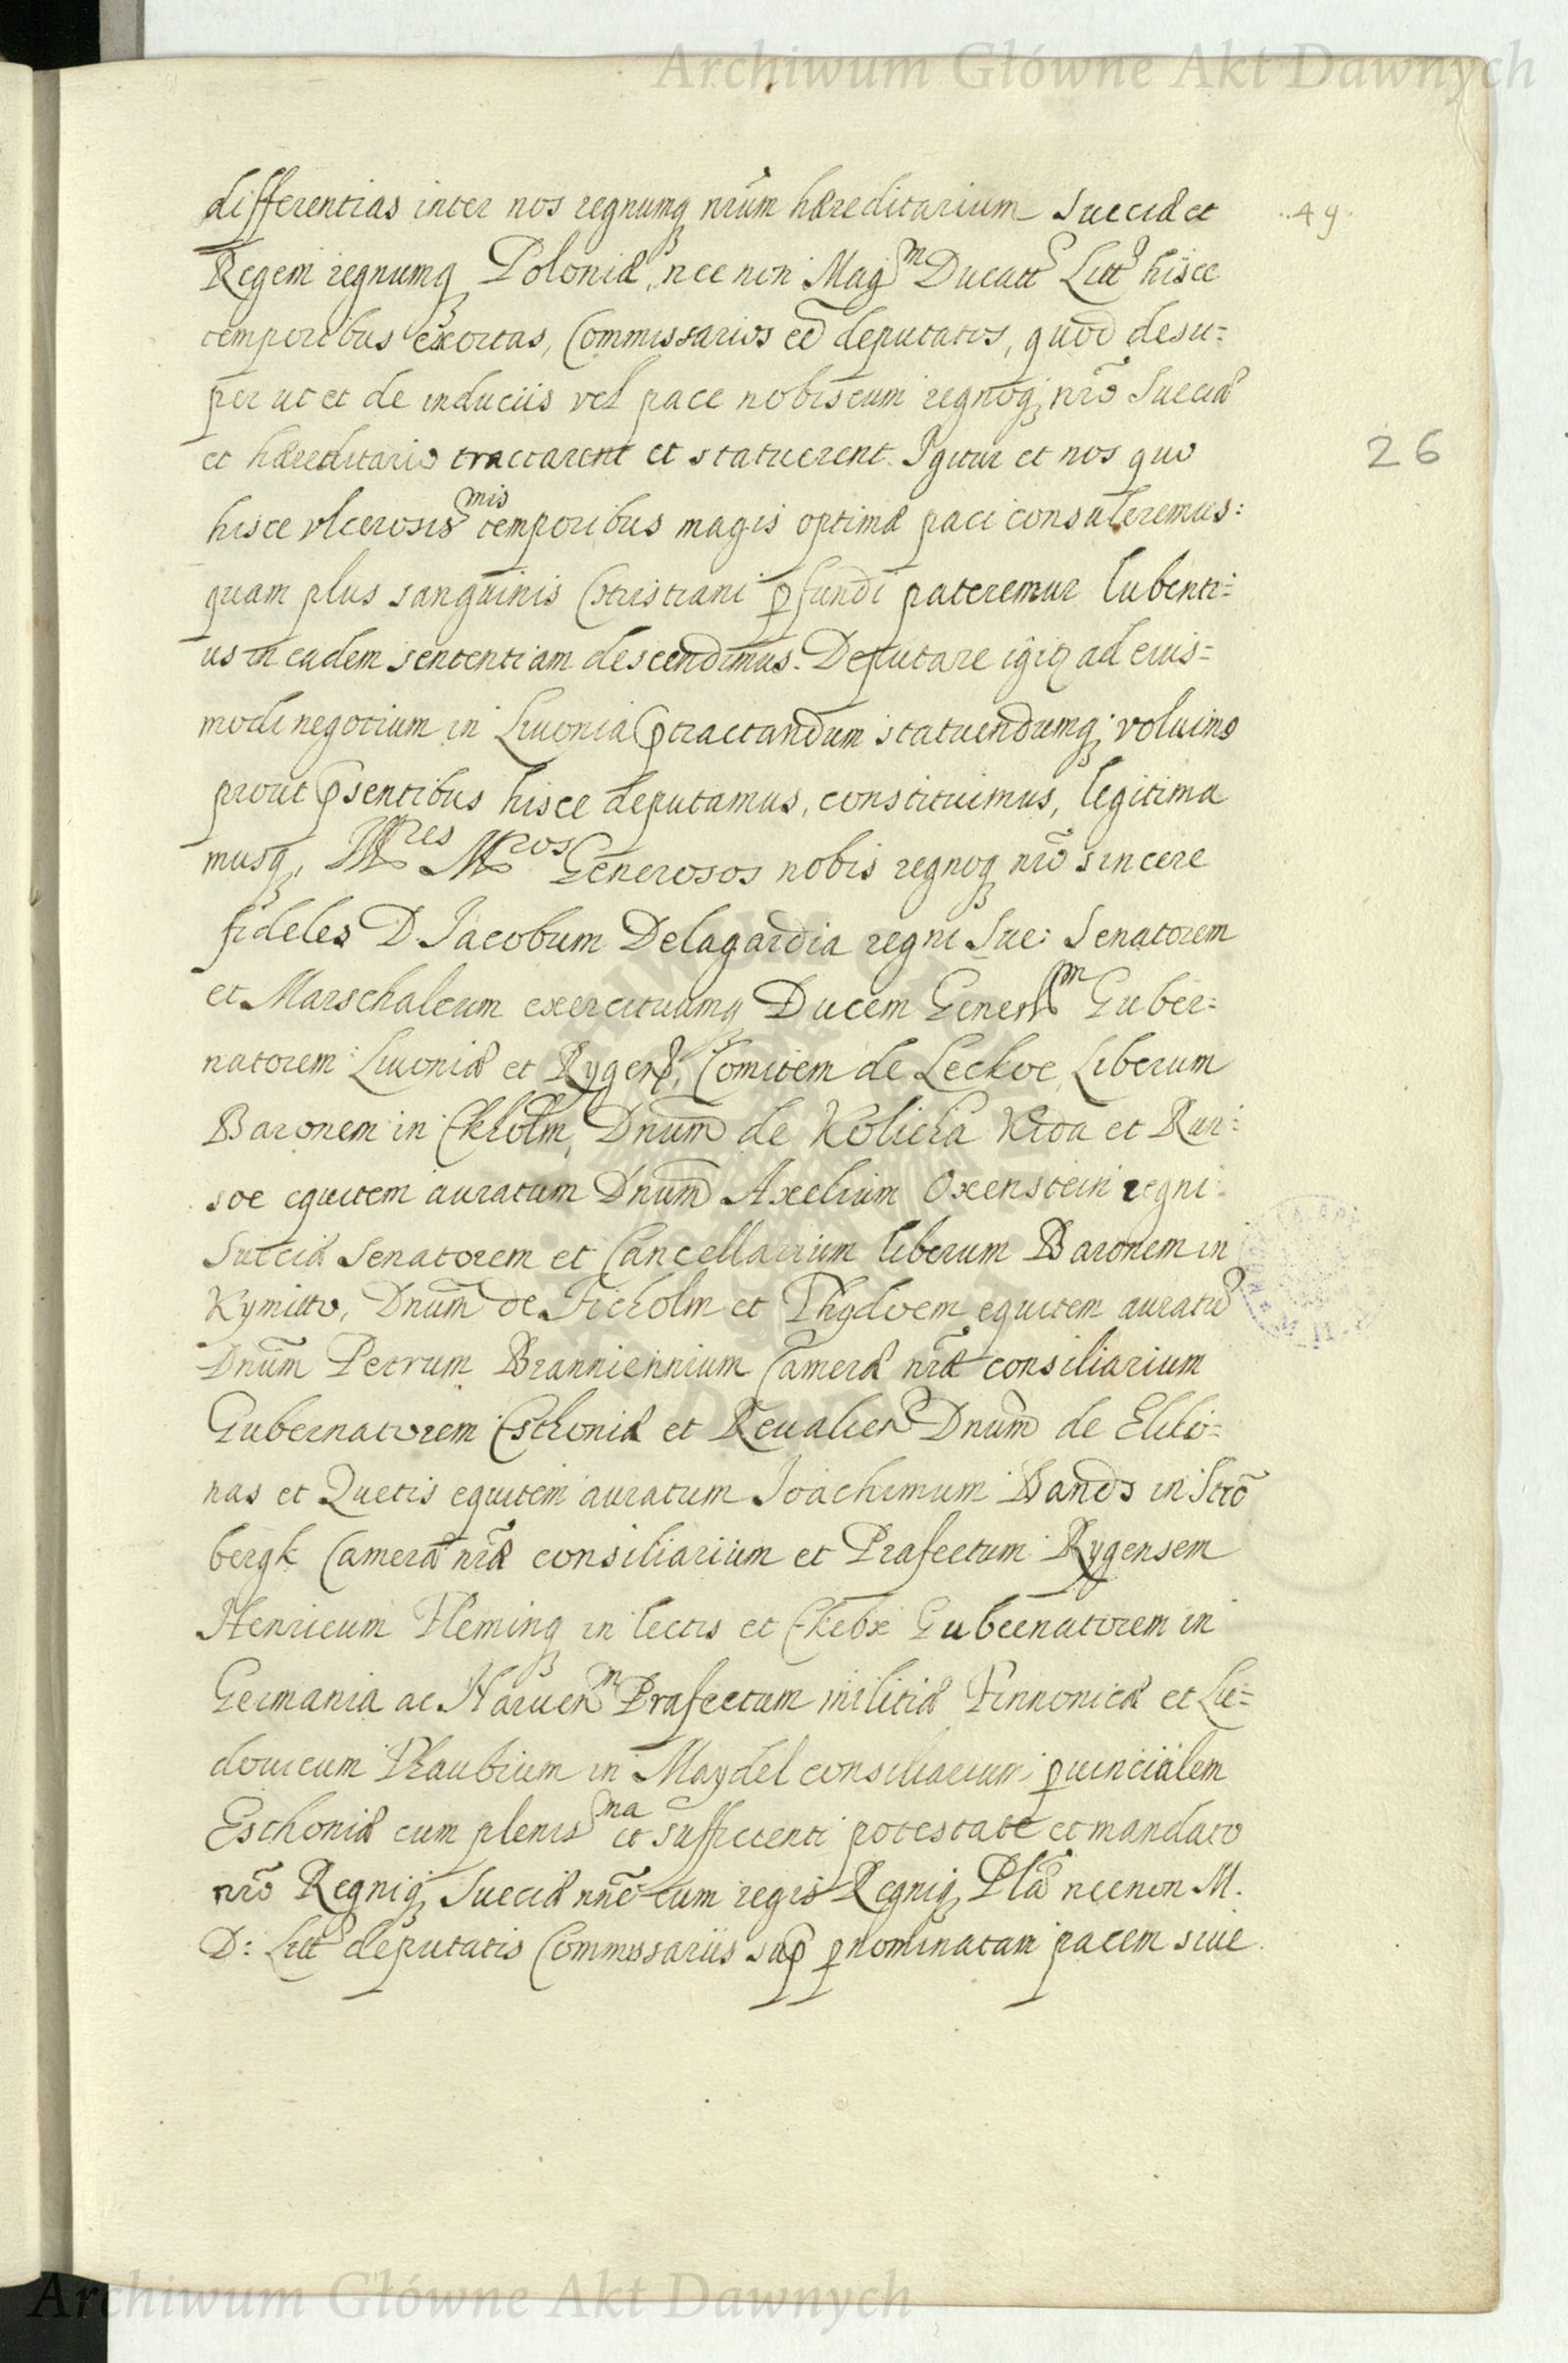 Archiwum Główne Akt Dawnych
differentias inter nos regnumq nrũm hæreditarium Sueciæ et
49
Regem regnumq Poloniæ, nec non Mag^m Ducatt Litt hisce
temporibus exortas, Commissarios eẽ deputatos, quod desu=
per ut et de induciis vel pace nobiscum regnoq; nrõ Sueciæ
et hæreditario tractarent et statuerent. Igitur et nos quo
26
hisce vlcerosis^mis temporibus magis optimæ paci consuleremus:
quam plus sanguinis Christiani ꝑfundi pateremur lubenti=
us in eadem sententiam descendimus. Deputare igiq ad eius=
modi negotium in Liuonia ꝑtractandum statuendumq; voluimꝰ
prout ꝑsentibus hisce deputamus, constituimus, legitima
musq, Generosos nobis regnoq nrõ sincere
fideles D Jacobum Delagardia regni Sue: Senatorem
et Marschalcum exercituumq Ducem Gener^m Guber=
natorem Liuoniæ et Rygen, Comitem de Leckoe Liberum
Baronem in Ekholm, Dnum de Kolicka Kida et Run=
soe equitem auratum Dnum Axelium Oxenstein regni
Sueciæ Senatorem et Cancellarium liberum Baronem in
Kymitto, Dnum de Ficholm et Thydoem equitem auratũ
Dnũm Petrum Branniennium Cameræ nrã consiliarium
Gubernatorem Esthoniæ et Reualien Dnum de Elilo=
nas et Quetis equitem auratum Joachimum Bands in Strõ
bergk Cameræ nræ consiliarium et Præfectum Rygensem
Henricum Fleming in lectis et Ekebx Gubernatorem in
Germania ac Naruen^m Præfectum militiæ Finnonicæ et Lu=
douicum Ꝛaubium in Maydel consiliarium ꝓuincialem
Esthoniæ cum plenis^ma et sufficienti potestate et mandato
nrõ Regniq; Sueciæ nnẽ cum regis Regniq; Plæ necnon M.
D: Litt deputatis Commissariis suꝑ ꝑnominatam pacem siue
Archiwum Główne Akt Dawnych